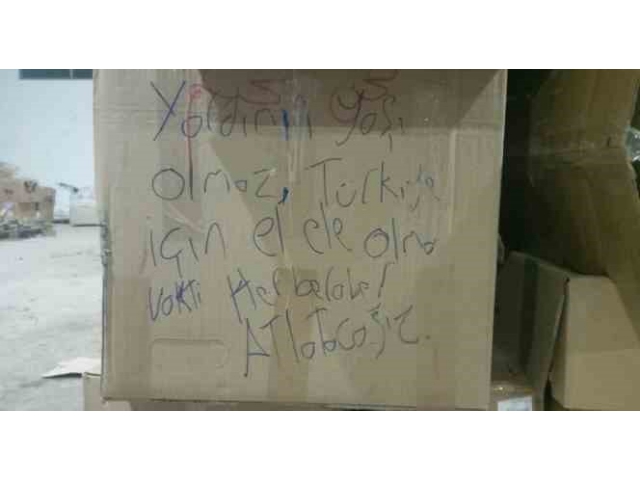 Yardımın yaşı
olmaz, Türkiye
için el ele olma
vakti Hep beraber!
ATlatacağız.